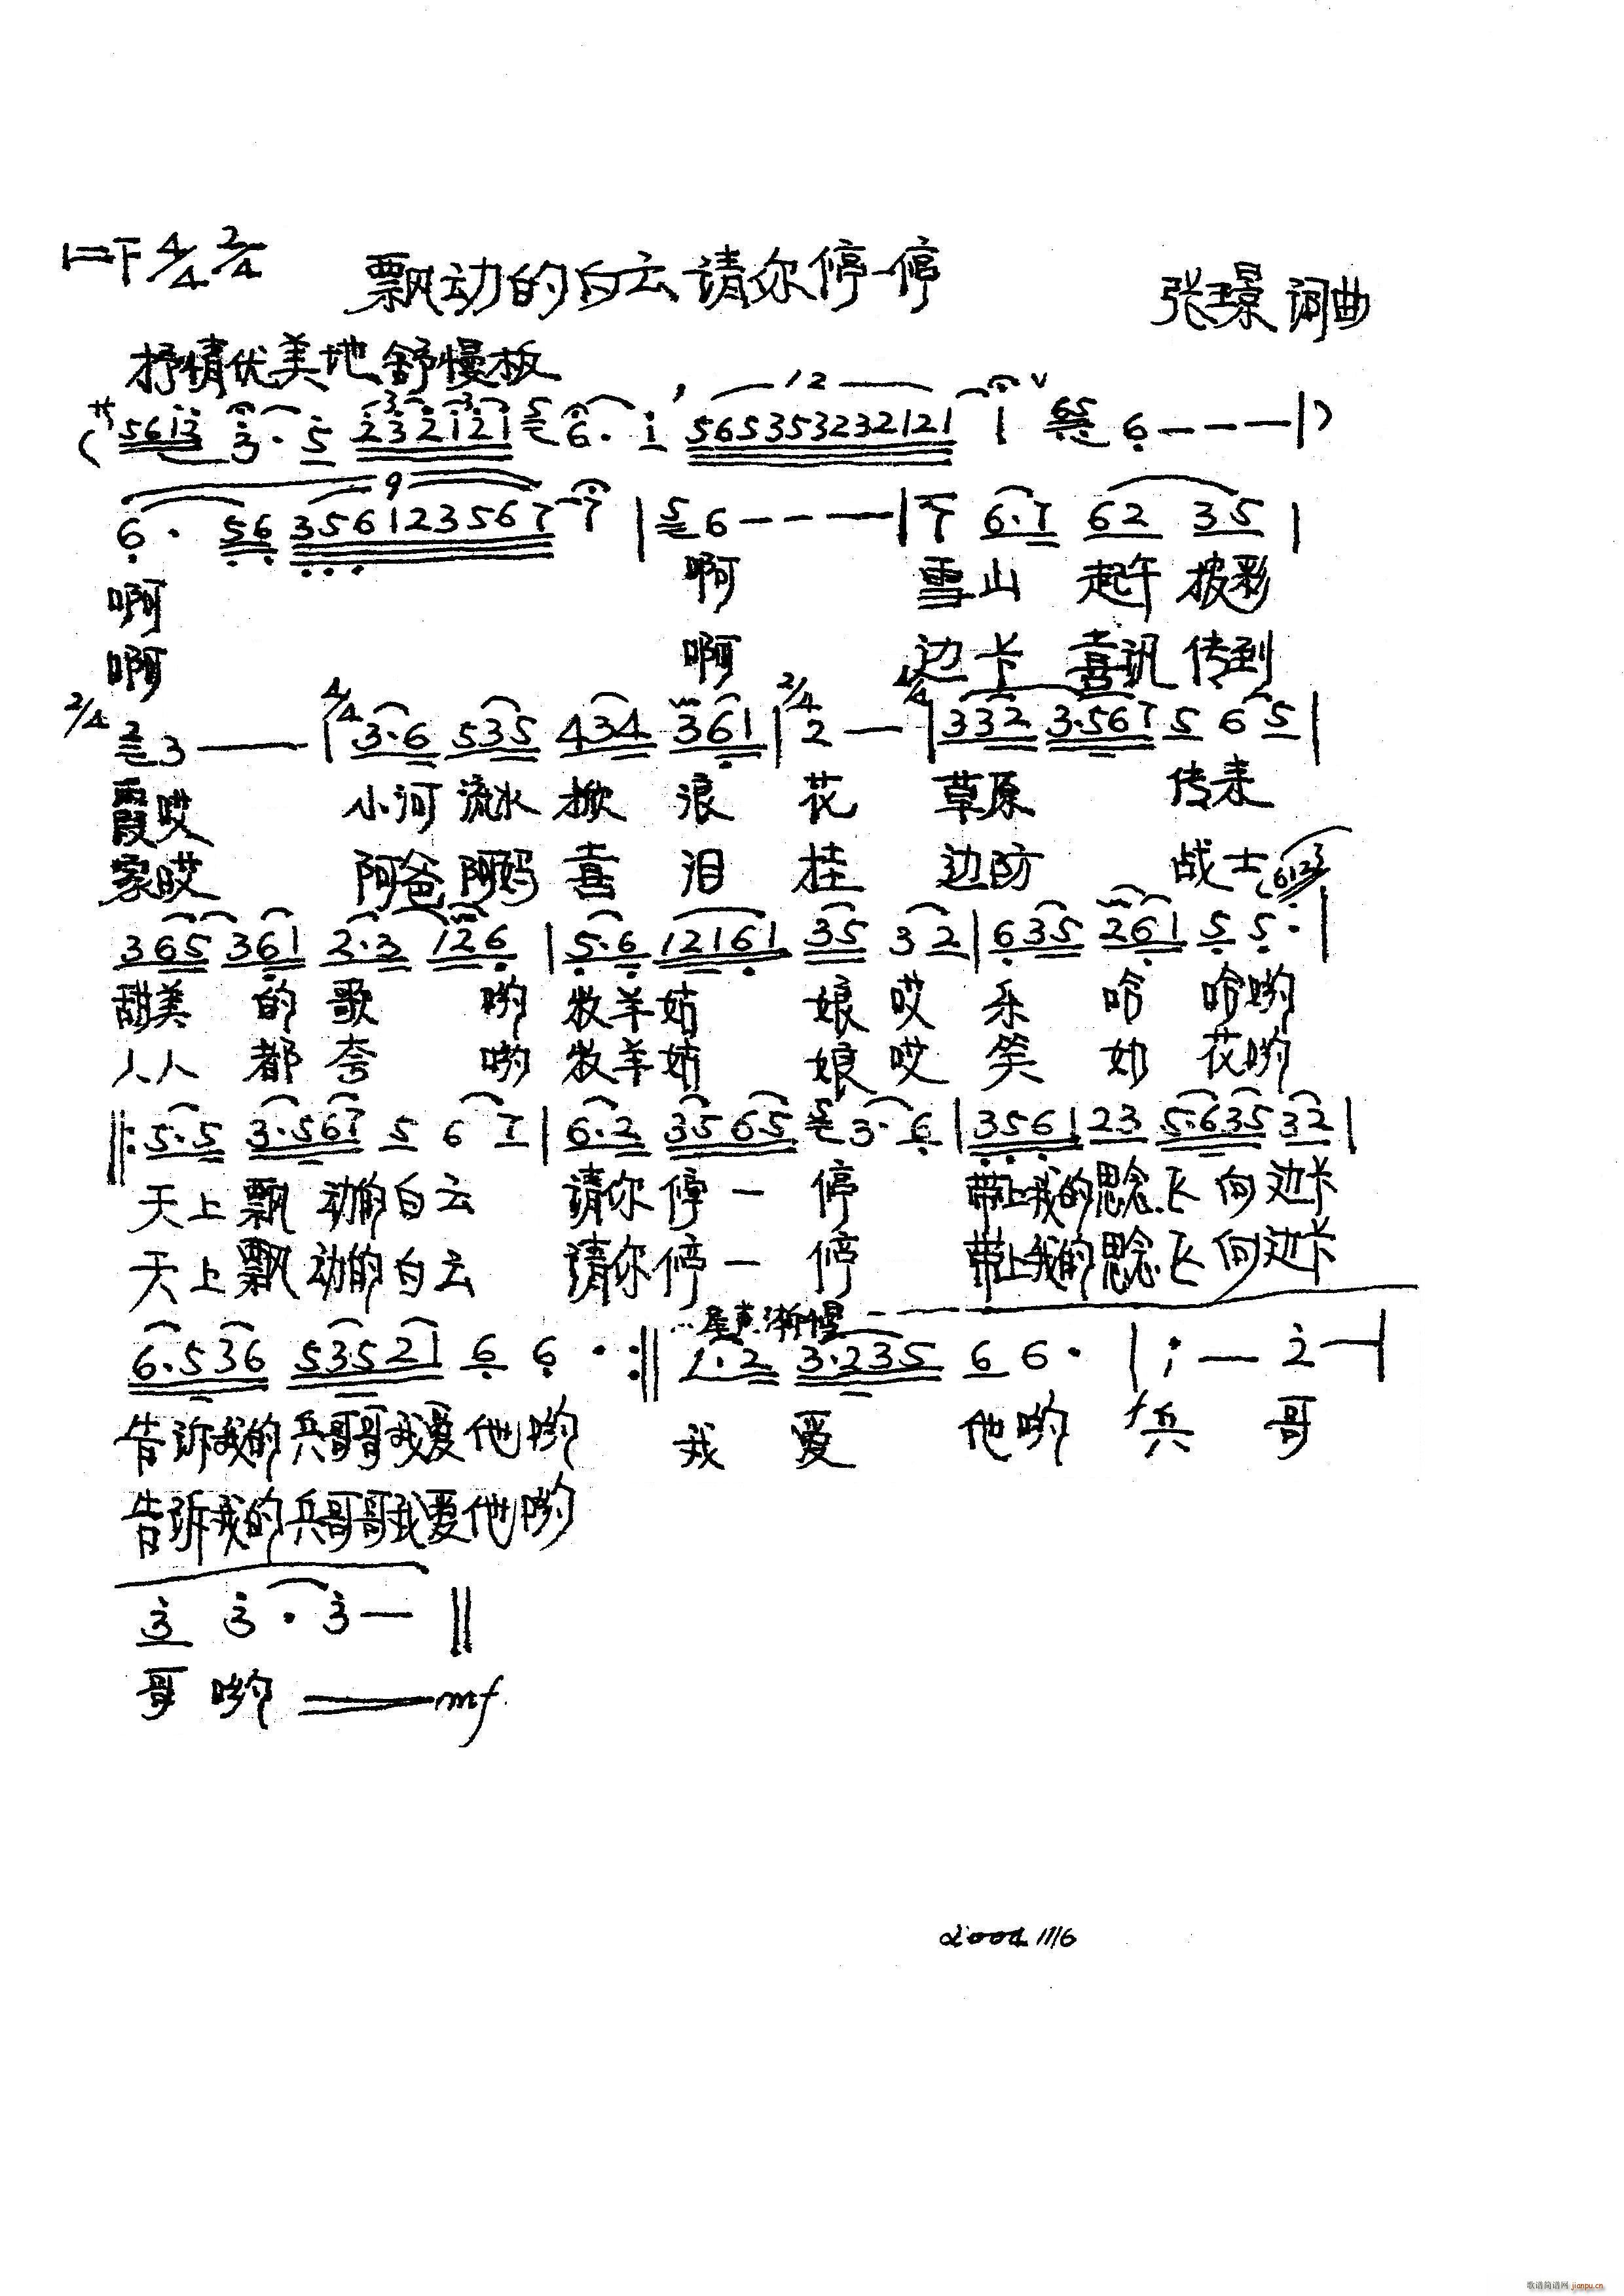 1=F 4/4 2/4
飘动的白云请你停一停
张璟 词曲
抒情优美地 舒慢板
(5613 3·5 232121 5 6·1 565353232121 1 65 6---|)
6·56 3561235677 |5 6---|7 6·7 62 35|
啊 啊 雪山 起午 披彩
啊 啊 边卡 喜讯 传到
2/4 2 3—|4/4 3·6 535 434 361|2/4 2—|4/4 332 3·567 5 6 5|
霞哎 小河 流水 掀 浪 花 草原 传来
家哎 阿爸 阿妈 喜 泪 挂 边防 战士 (6123
365 361 2·3 126|5·6 12161 35 32|635 261 5 5·|
甜美 的 歌 哟 牧羊姑 娘 哎 乐 哈 哈哟
人人 都 夸 哟 牧羊姑 娘 哎 笑 如 花哟
‖:5·5 3·567 5 6 7|6·2 3565 5 3·6|3561 23 5·635 32|
天上飘 动的白云 请你停一 停 带上我的思念飞 向 边卡
天上飘 动的白云 请你停一 停 带上我的思念飞 向边卡
尾声渐慢
6·536 53521 6 6·:‖1·2 3·235 6 6·|1—2—|
告诉我的兵哥哥我爱他哟 我 爱 他哟 兵 哥
告诉我的兵哥哥我爱他哟
3 3·3— ‖
哥 哟 mf
2004 11/6
歌谱简谱网 jianpu.cn